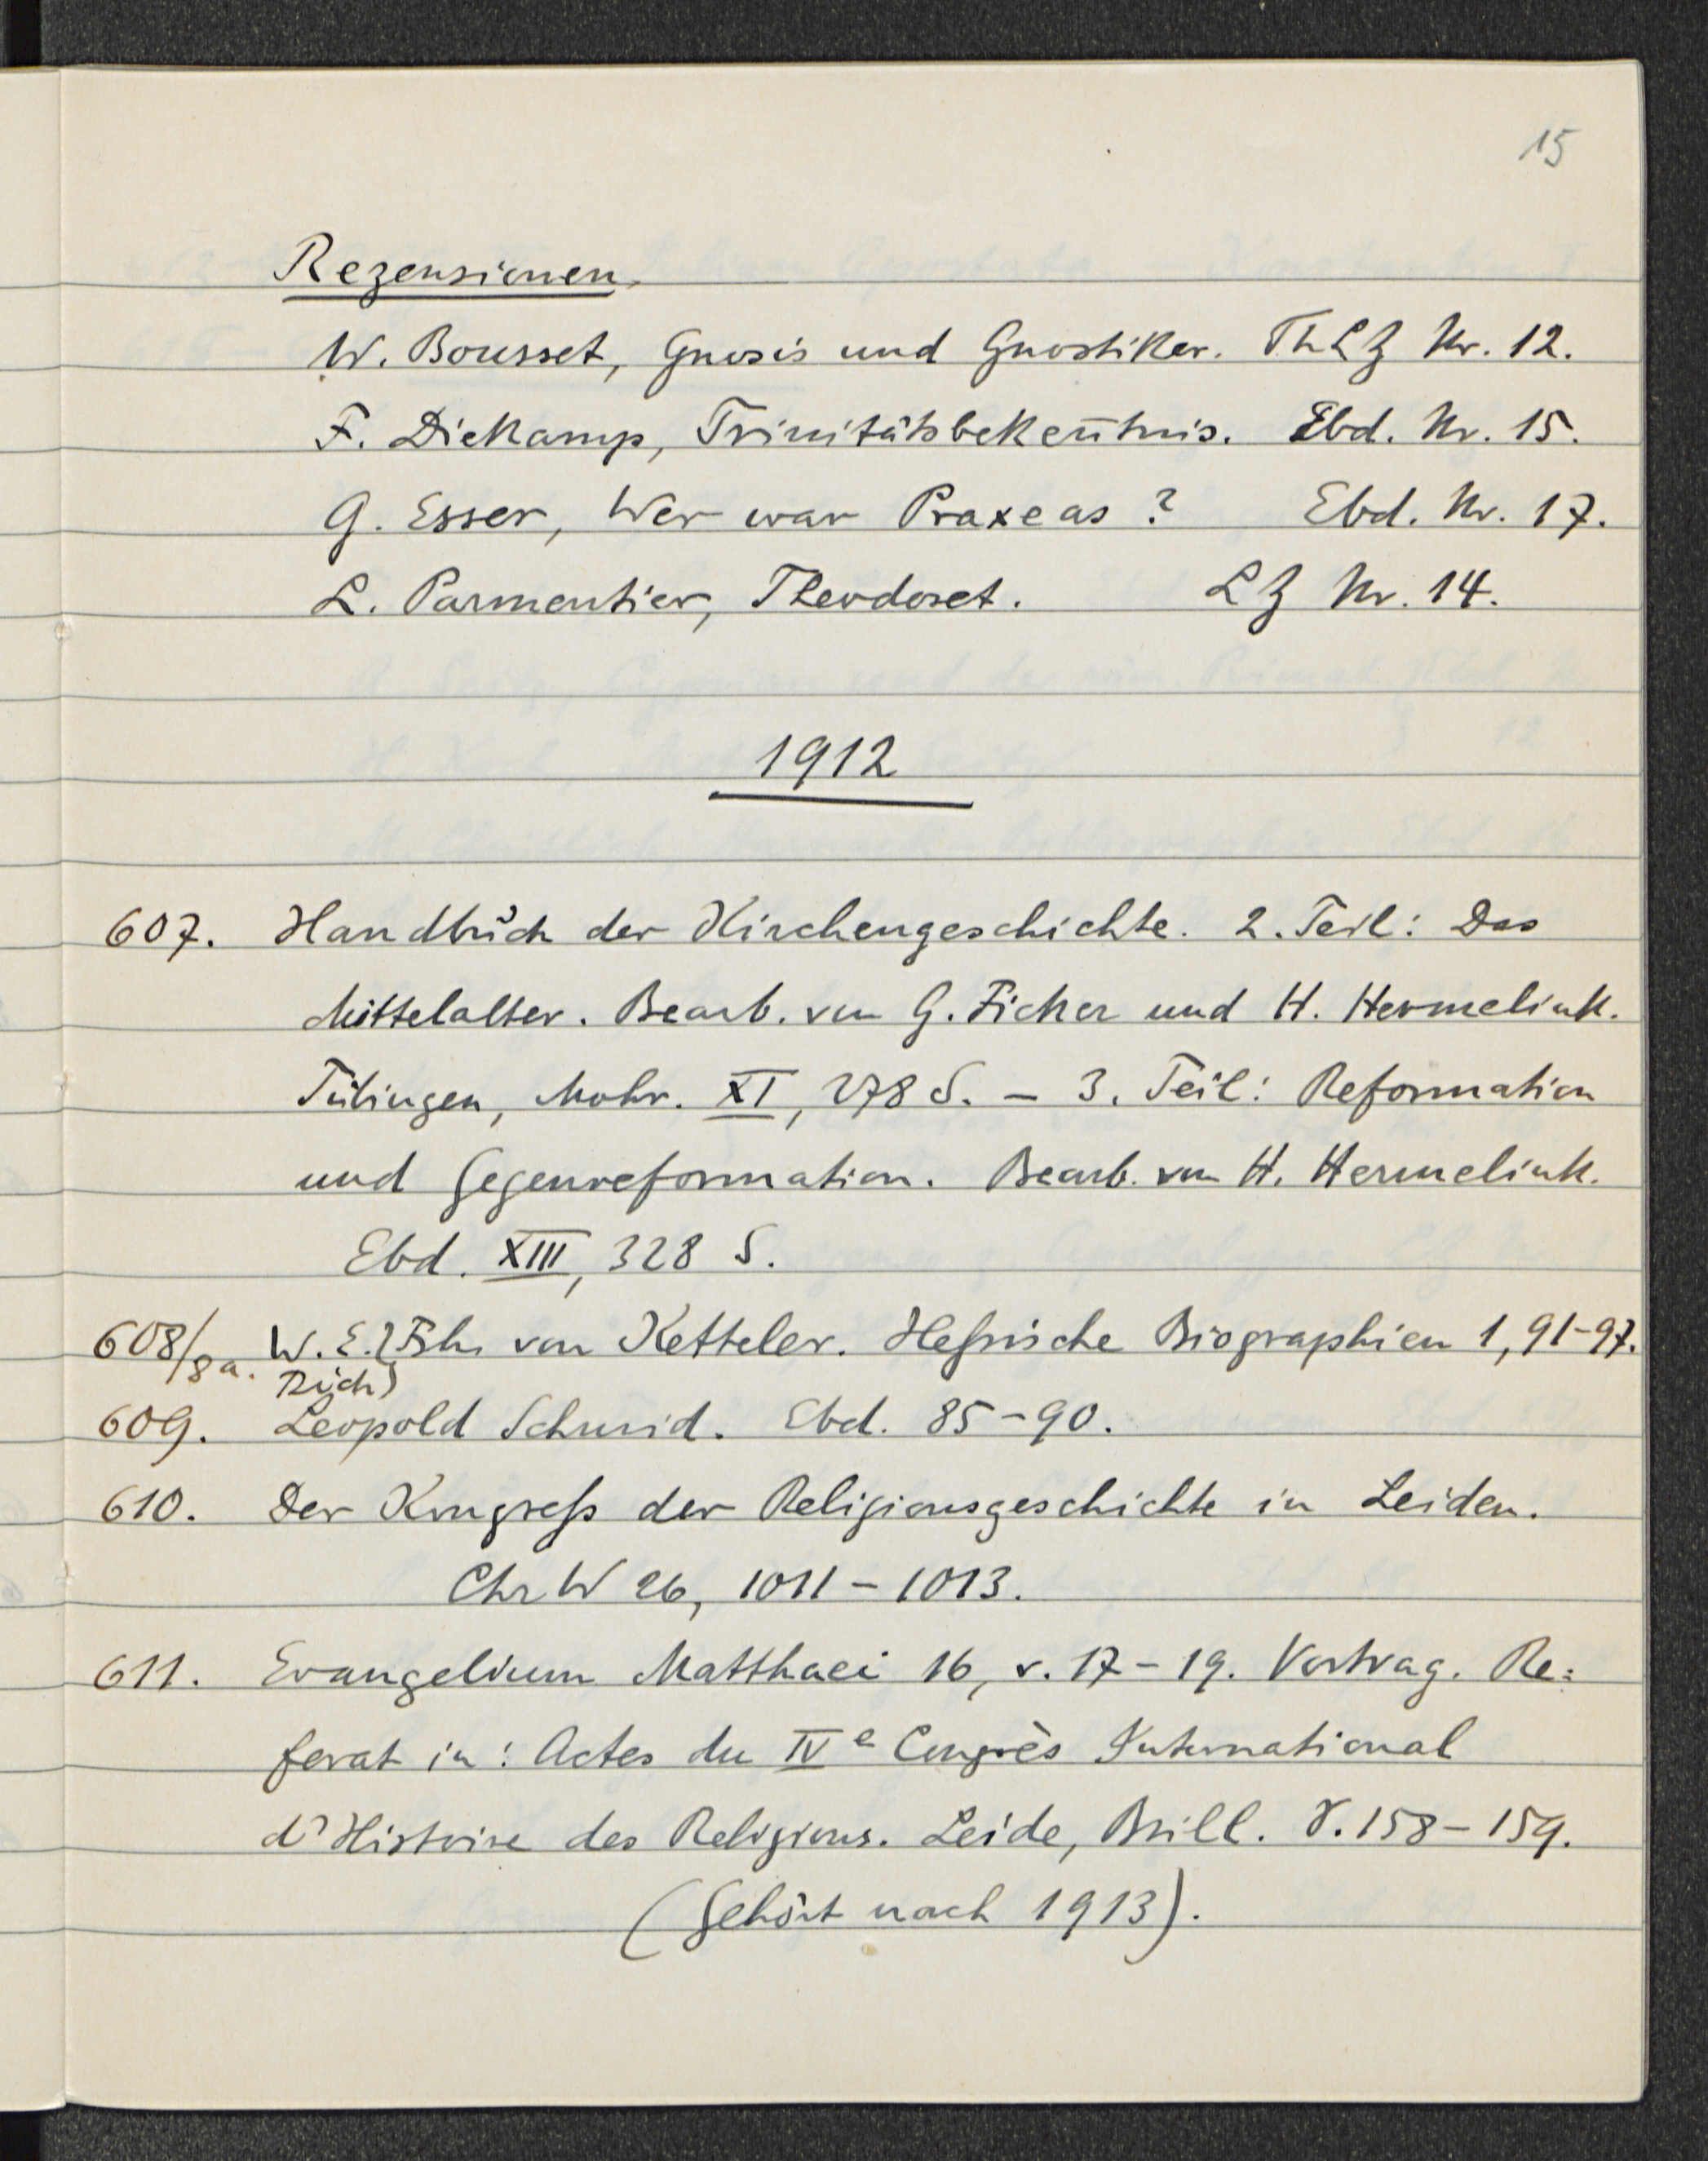 15
Rezensionen.
W. Bousset, Gnosis und Gnostiker. ThLZ Nr. 12.
F. Diekamp, Trinitätsbekeñtnis. Ebd. Nr. 15.
G. Esser, Wer war Praxeas? Ebd. Nr. 17.
L. Parmentier, Theodoret. LZ Nr. 14.
1912
607. Handbuch der Kirchengeschichte. 2. Teil: Das
Mittelalter. Bearb. von G. Ficker und H. Hermelink.
Tübingen, Mohr. XI, 278 S. – 3. Teil: Reformation
und Gegenreformation. Bearb. von H. Hermelink.
Ebd. XIII, 328 S.
608/8a. W. E. Frh. von Ketteler. Heßische Biographien 1, 91-97.
609. Leopold Schmid. Ebd. 85-90.
610. Der Kongreß der Religionsgeschichte in Leiden.
ChrW 26, 1011-1013.
611. Evangelium Matthaei 16, v. 17-19. Vortrag. Re=
ferat in: Actes du IVe Congrès International
d'Histoire des Religions. Leide, Brill. S. 158-159.
(Gehört nach 1913).